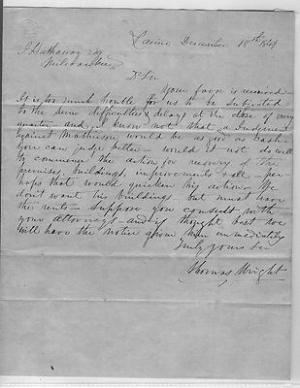 Racine December 18th 1849
J Hathaway Esq
Milwaukee
Dr Sir
Your favor is received
It is too much trouble for us to be subjected
to the same difficulties & delays at the close of every
quarter and I know not that a Judgement
against Mathewson would be as good as cash
you can judge better - would it not do well
to commence the action for recovery of the
premises, buildings, improvements & all - per-
haps that would quicken his action - We
don't want his buildings - but must have
the rents - Suppose you consult with
your attorneys - and if thought best we
will have the notice given him immediately
Truly yours &c
Thomas Wright